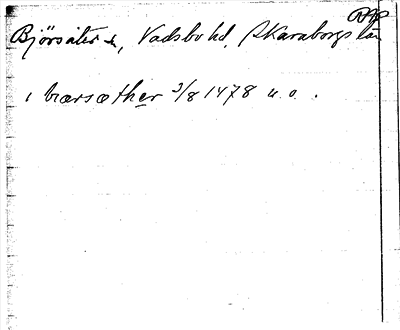 RAP
Björsäter s, Vadsbo hd, Skaraborgs län
i bærsæther 3/8 1478 u.o.